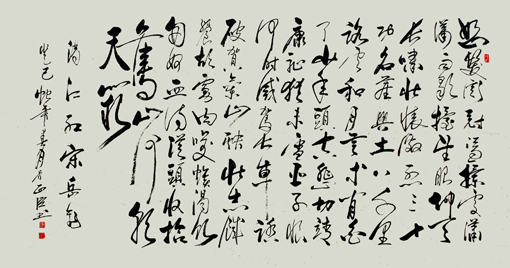 怒髮衝冠憑欄處瀟
瀟雨歇擡望眼仰天
長嘯壯懷激烈三十
功名塵與土八千里
路雲和月莫等閒白
了少年頭空悲切靖
康恥猶未雪臣子恨
何時滅駕長車踏
破賀蘭山缺壯志饑
餐胡虜肉笑談渴飲
匈奴血待從頭收拾
舊山河朝
天闕
滿江紅宋岳飛
癸巳